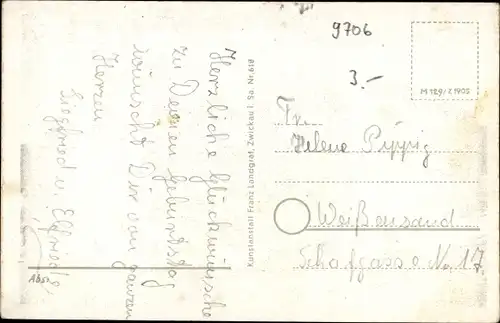 9706
3.-
M 129/Z 1905
Herzliche Glückwünsche
zu Deinem Geburtstag
wünscht Dir von ganzen
Herzen
Siegfried u. Elfriede
Abs.
Kunstanstalt Franz Landgraf, Zwickau i. Sa. Nr. 618
Fr.
Helene Pippig
Weißensand
Schafgasse No. 17.